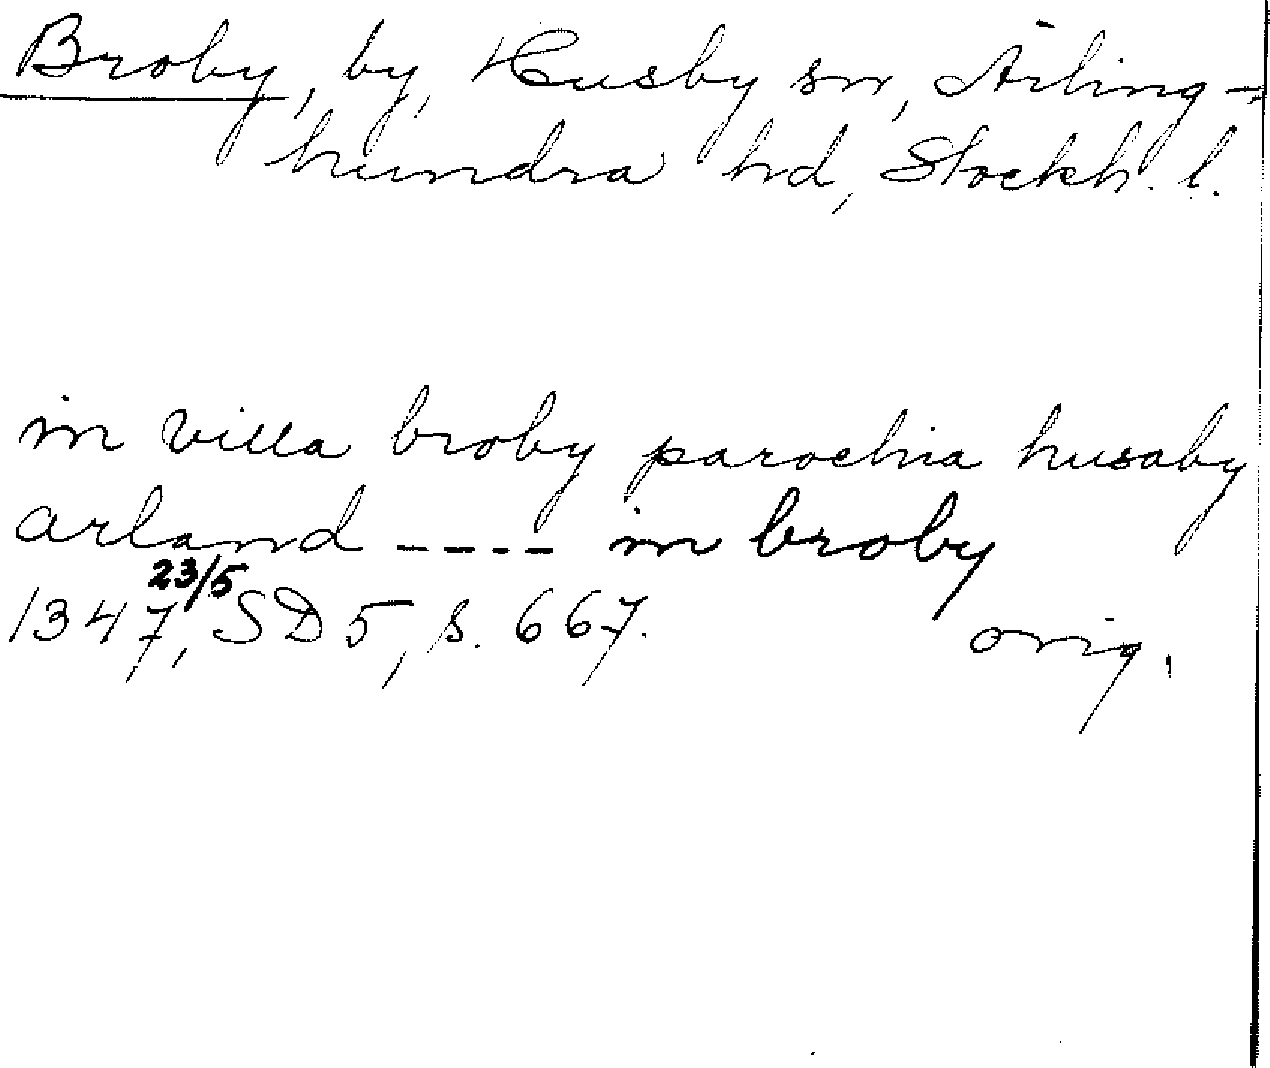 Broby, by, Husby sn, Ärling-
hundra hd, Stockh. l.
in villa broby parochia husaby
arland ---- in broby
23/5
1347, SD 5, s. 667. orig.